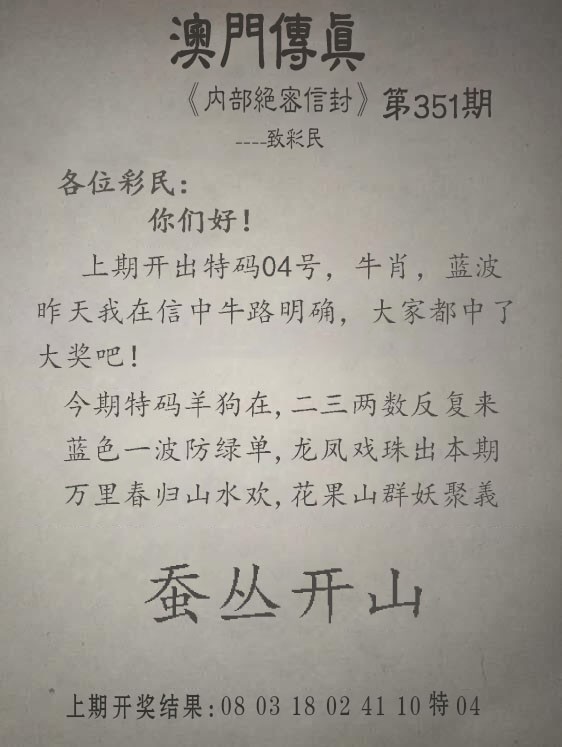 澳門傳眞
《内部絕密信封》第351期
----致彩民
各位彩民：
你们好！
上期开出特码04号，牛肖，蓝波
昨天我在信中牛路明确，大家都中了
大奖吧！
今期特码羊狗在,二三两数反复来
蓝色一波防绿单,龙凤戏珠出本期
万里春归山水欢,花果山群妖聚義
蚕丛开山
上期开奖结果:08 03 18 02 41 10 特 04